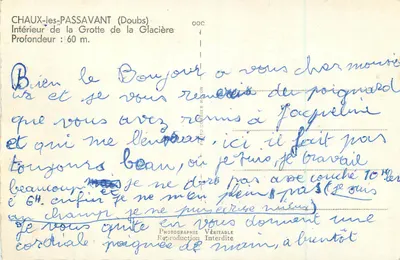 CHAUX-les-PASSAVANT (Doubs)
Intérieur de la Grotte de la Glacière
Profondeur : 60 m.
Bien le Bonjour a vous cher monsi
ur et je vous remercie du poignard
que vous avez remis à Jacqueline
et qui me, ici il fait pas
toujours beau, où je suis, je travail
beaucoup je ne dors pas assé couché 10 H
é 6H. enfin je ne m'en plein pas (je suis
au champ je ne
Je vous quite en vous donnent une
cordiale poignée de main, a bientôt
PHOTOGRAPHIE VÉRITABLE
Reproduction Interdite